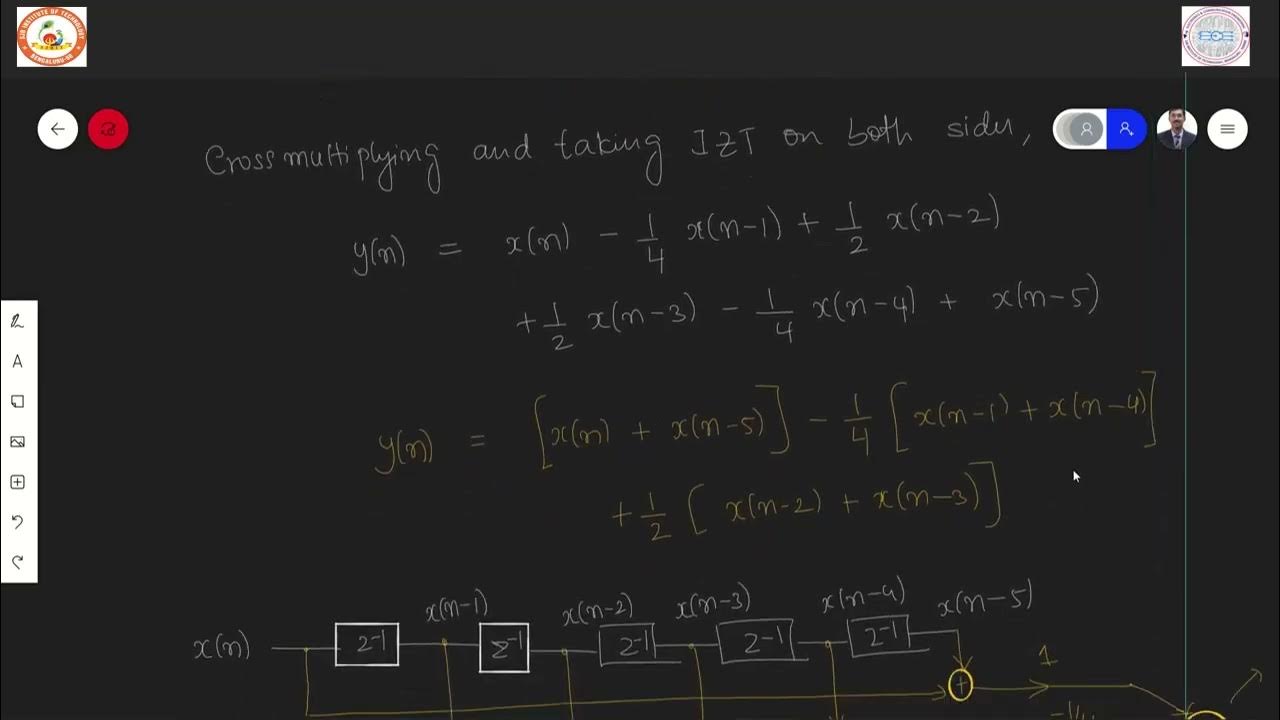 SJB INSTITUTE OF TECHNOLOGY
BENGALURU-60
ECE
Cross multiplying and taking IZT on both sides,
y(n) = x(n) - 1/4 x(n-1) + 1/2 x(n-2)
+ 1/2 x(n-3) - 1/4 x(n-4) + x(n-5)
y(n) = [x(n) + x(n-5)] - 1/4 [x(n-1) + x(n-4)]
+ 1/2 [x(n-2) + x(n-3)]
x(n-1) x(n-2) x(n-3) x(n-4) x(n-5)
x(n) z⁻¹ z⁻¹ z⁻¹ z⁻¹ z⁻¹
+ 1
-1/4
A